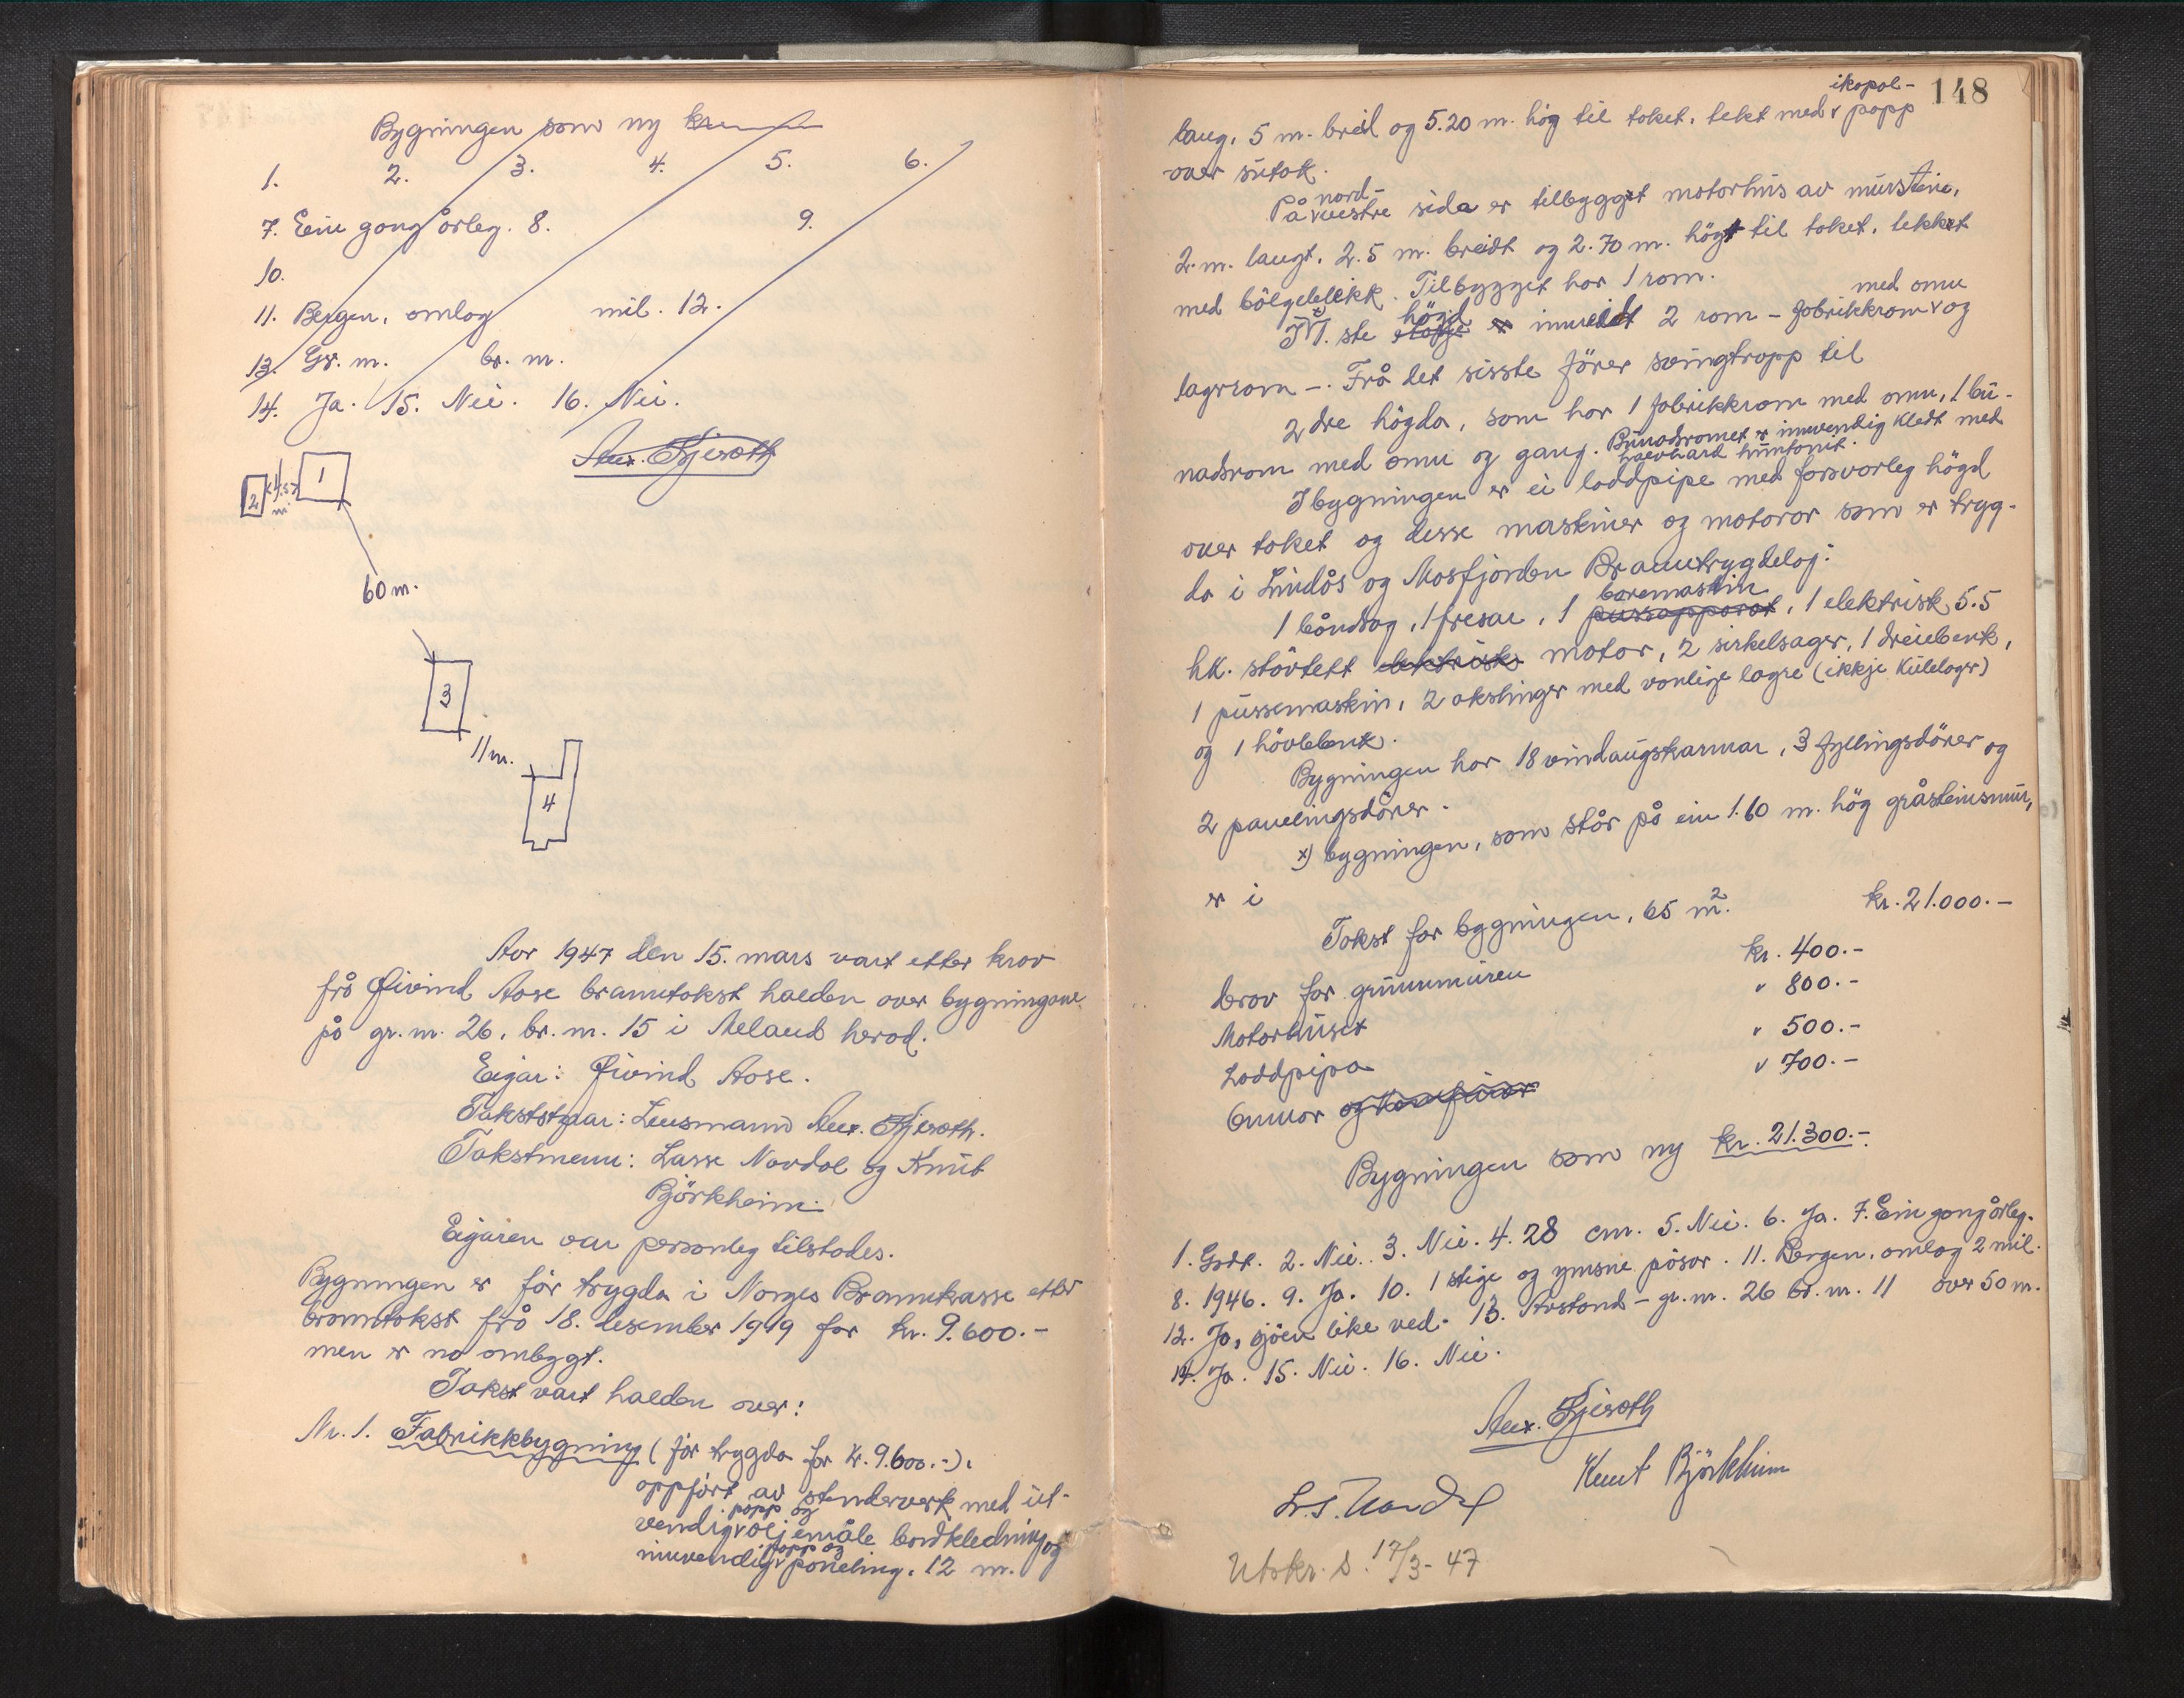 Bygningen som ny kr
1. 2. 3. 4. 5. 6.
7. Ein gong årleg. 8. 9.
10.
11. Bergen, omlag mil. 12.
13. Gr. nr. br. nr.
14. Ja. 15. Nei. 16. Nei.
1
2
4.50
m
60 m.
3
11 m.
4
Aar 1947 den 15. mars vart etter krav
frå Øivind Aase branntakst halden over bygningane
på gr. nr. 26, br. nr. 15 i Meland herad.
Eigar: Øivind Aase.
Takststyrar: Lensmann
Takstmenn: Lasse Nordal og Knut
Björkheim.
Eigaren var personleg tilstades.
Bygningen er för trygda i Norges Brannkasse etter
branntakst frå 18. desember 1919 for kr. 9.600.-
men er no ombygt.
Takst vart halden over:
Nr. 1. Fabrikkbygning (för trygda for kr. 9.600.-).
oppfört av stenderverk med ut-
papp og
vendig v oljemåla bordkledning og
papp og
innvendig v paneling. 12 m.
148
ikopal-
lang, 5 m. breid og 5.20 m. hög til taket, tekt med v papp
over sutak.
nord-
På v vestre sida er tilbygget motorhus av murstein,
2 m. langt, 2.5 m. breidt og 2.70 m. högt til taket, tekket
med bölgeblikk. Tilbygget har 1 rom.
högd med omn
I x) 1. ste etasje er innreidt 2 rom - fabrikkrom v og
lagerrom -. Frå det sisste förer svingtrapp til
2 dre högda, som har 1 fabrikkrom med omn, 1 bu-
nadsrom med omn og gang. Bunadsromet er innvendig kledt med
halvhard huntonit.
I bygningen er ei loddpipe med forsvarleg högd
over taket og desse maskiner og motorar som er tryg-
da i Lindås og Masfjorden Branntrygdelag:
boremaskin
1 båndsag, 1 fresar, 1 pussapparat, 1 elektrisk 5.5
hk. stövtett elektrisk motor, 2 sirkelsager, 1 dreiebenk,
1 pussemaskin, 2 akslinger med vanlige lagre (ikkje kulelager)
og 1 hövlebenk.
Bygningen har 18 vindaugskarmar, 3 fyllingsdörer og
2 panelingsdörer.
x) bygningen, som står på ein 1.60 m. hög gråsteinsmur,
er i
Takst for bygningen, 65 m2. kr. 21.000.-
Derav for grunnmuren kr. 400.-
Motorhuset " 800.-
Loddpipa " 500.-
Omnar og " 700.-
Bygningen som ny kr. 21.300.-
1. Godt. 2. Nei. 3. Nei. 4. 28 cm. 5. Nei. 6. Ja. 7. Ein gong årleg.
8. 1946. 9. Ja. 10. 1 stige og ymsne pösar. 11. Bergen, omlag 2 mil.
12. Ja, sjöen like ved. 13. Avstand - gr. nr. 26 br. nr. 11 over 50 m.
14. Ja. 15. Nei. 16. Nei.
Knut Björkheim
Utskr. d. 17/3-47